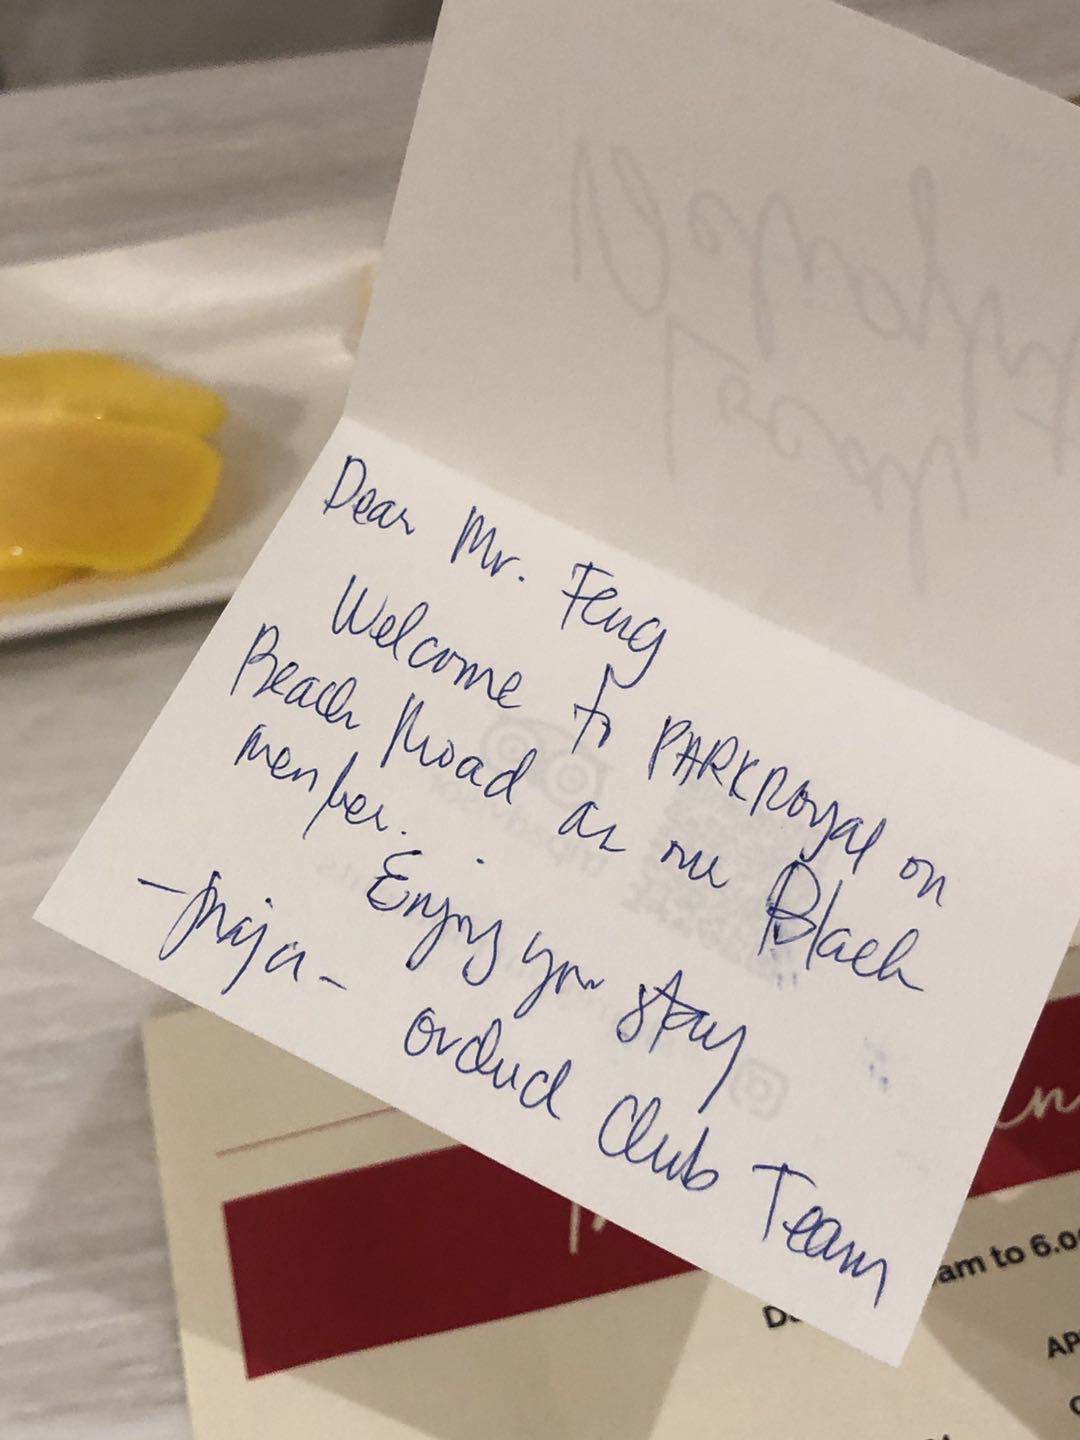 Dear Mr. Feng
Welcome to PARKROYAL on
Beach Road as our Black
member.
Enjoy your stay
Orchid Club Team
am to 6.0
AP